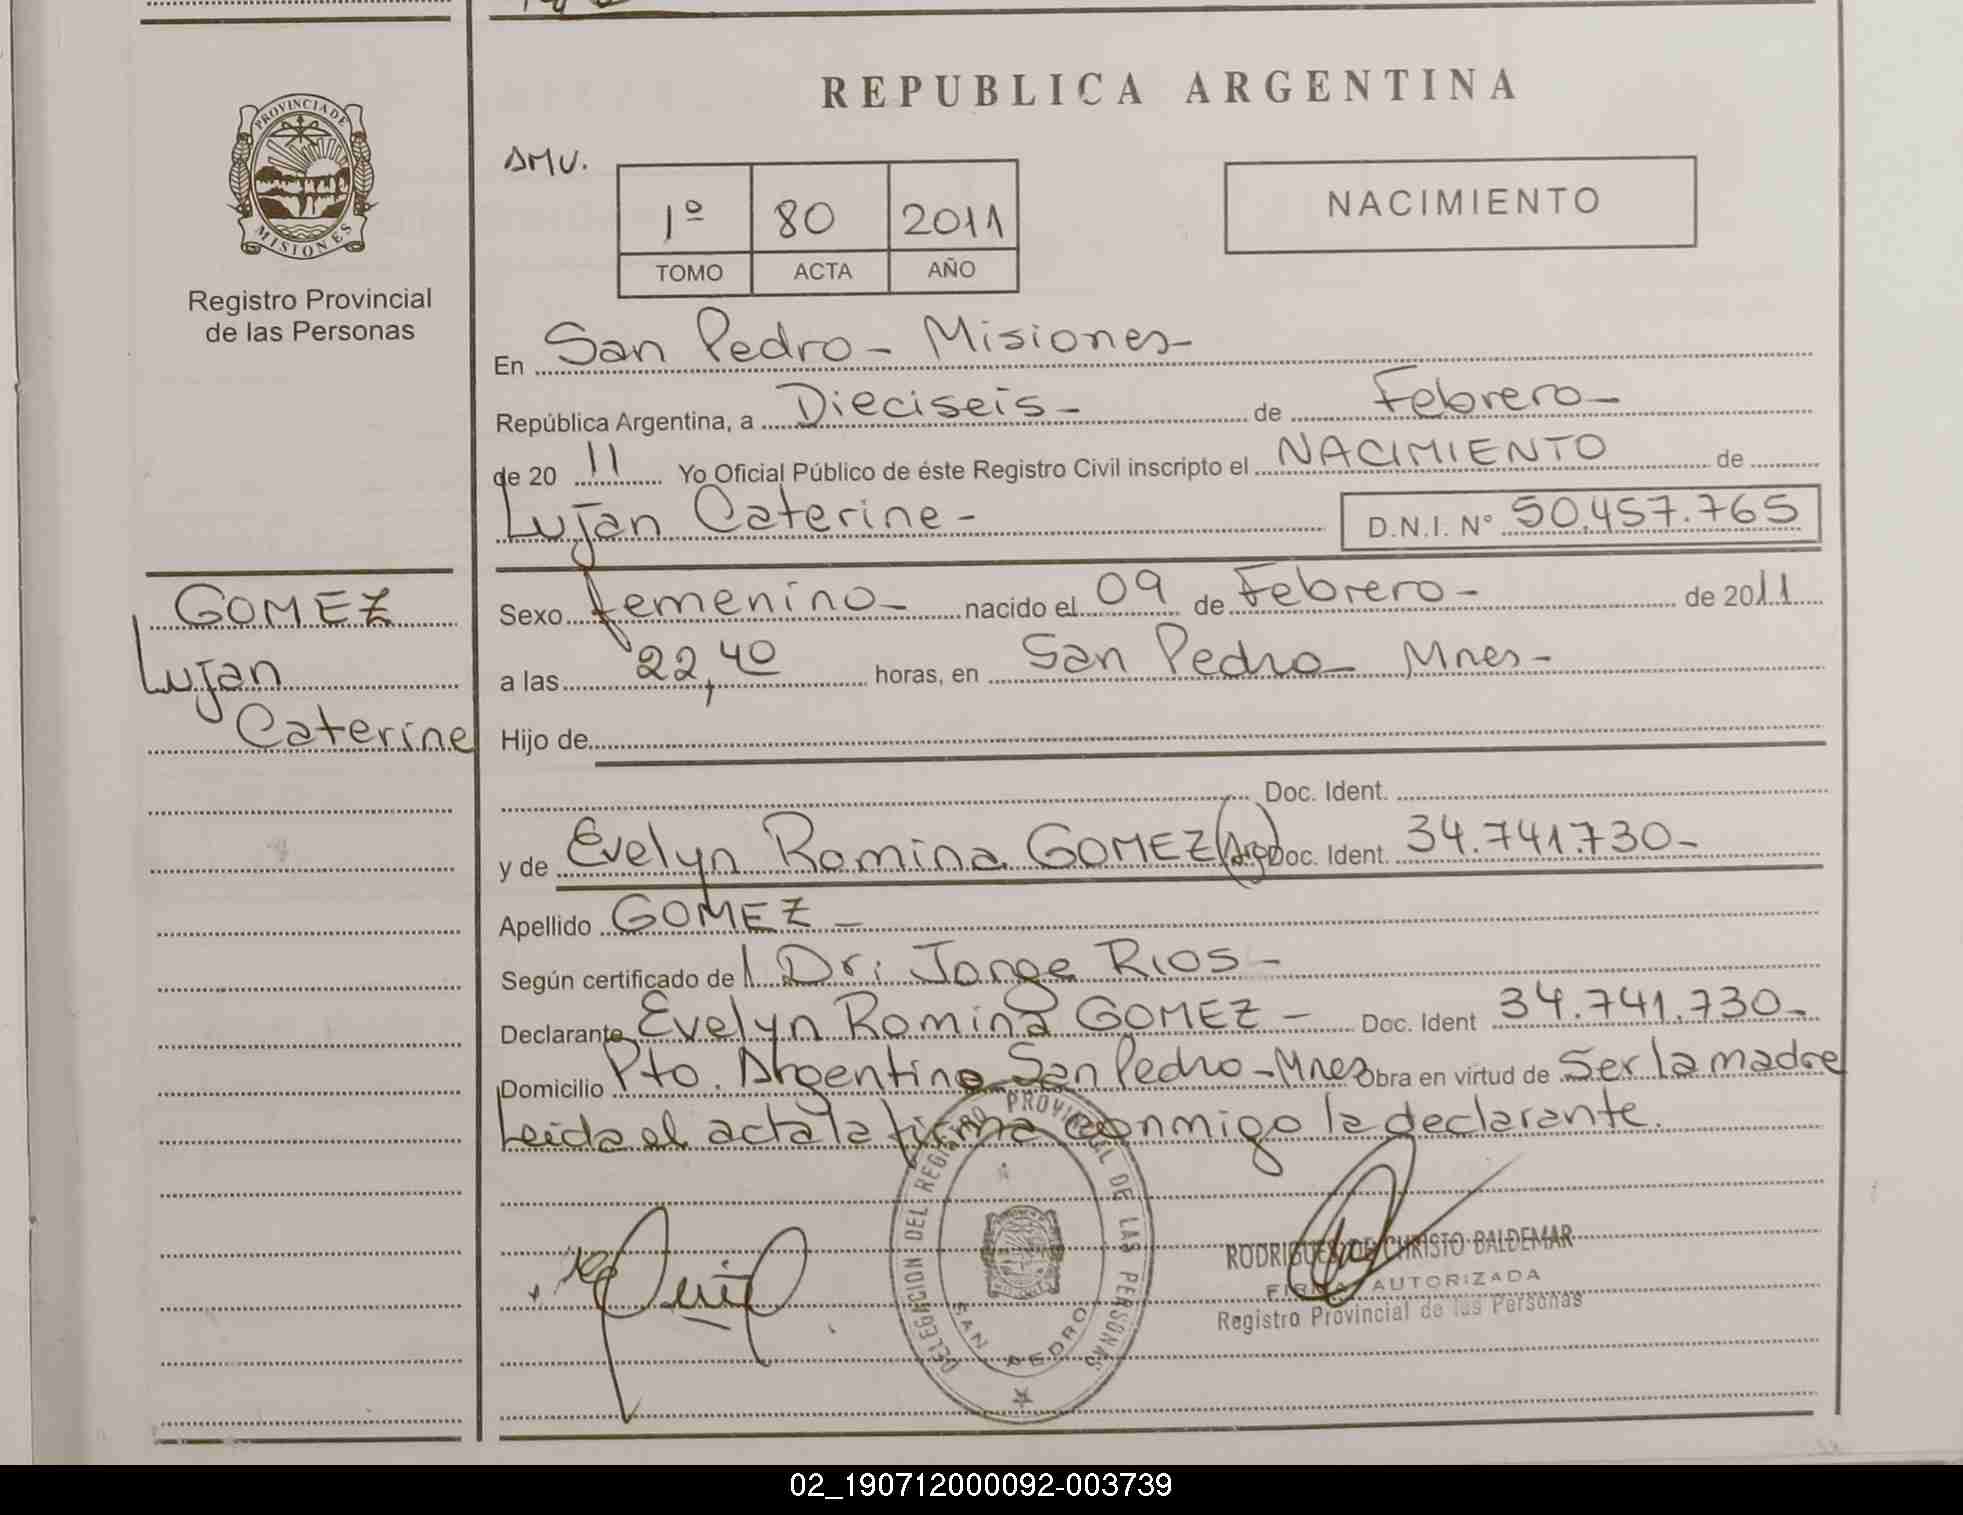 PROVINCIA DE
MISIONES
Registro Provincial
de las Personas
GOMEZ
Lujan
Caterine
REPUBLICA ARGENTINA
AMU.
1º 80 2011
TOMO ACTA AÑO
NACIMIENTO
En San Pedro - Misiones -
República Argentina, a Dieciseis - de Febrero -
de 20 11 Yo Oficial Público de éste Registro Civil inscripto el NACIMIENTO de
Lujan Caterine - D.N.I. N° 50.457.765
Sexo femenino - nacido el 09 de Febrero - de 2011
a las 22,40 horas, en San Pedro - Mnes -
Hijo de
Doc. Ident.
y de Evelyn Romina GOMEZ (Arg) Doc. Ident. 34.741.730 -
Apellido GOMEZ -
Según certificado de Dr: Jorge RIOS -
Declarante Evelyn Romina GOMEZ - Doc. Ident 34.741.730 -
Domicilio Pto. Argentino San Pedro - Mnes Obra en virtud de Ser la madre
Leida el acta la firma conmigo la declarante.
DELEGACION DEL REGISTRO PROVINCIAL DE LAS PERSONAS
SAN PEDRO
RODRIGUES DE CHRISTO BALDEMAR
FIRMA AUTORIZADA
Registro Provincial de las Personas
02_190712000092-003739